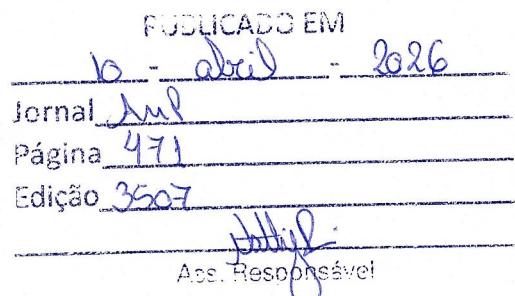 PUBLICADO EM
10 - abril - 2026
Jornal AMP
Página 471
Edição 3507
Ass. Responsável